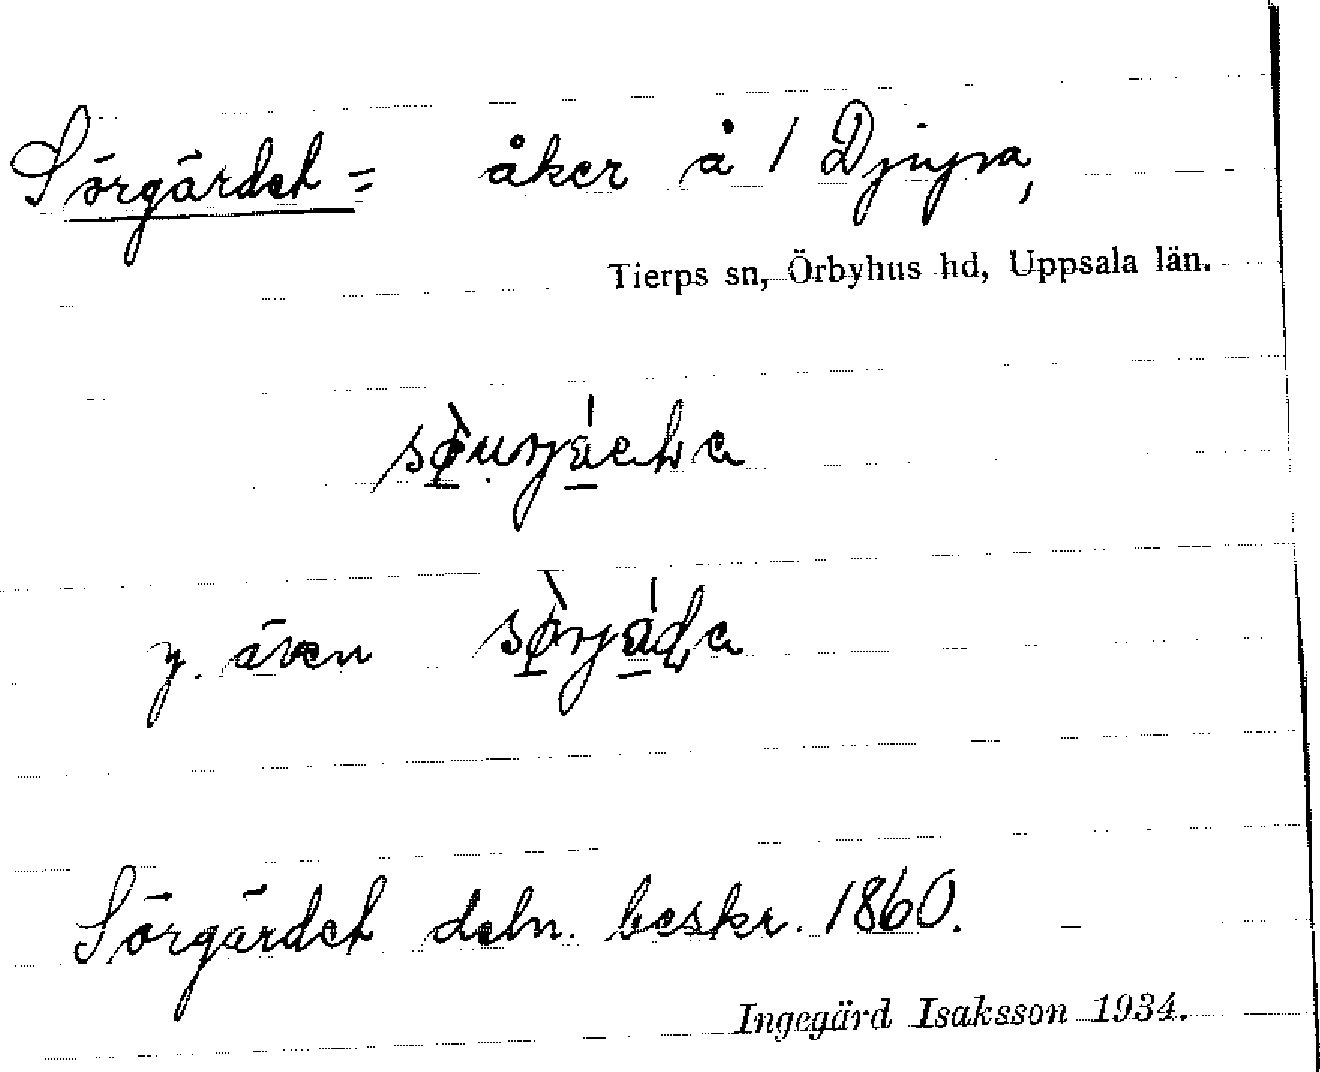 Sörgärdet = åker å 1 Djupa,
Tierps sn, Örbyhus hd, Uppsala län.
y. även
Sörgärdet deln. beskr. 1860.
Ingegärd Isaksson 1934.